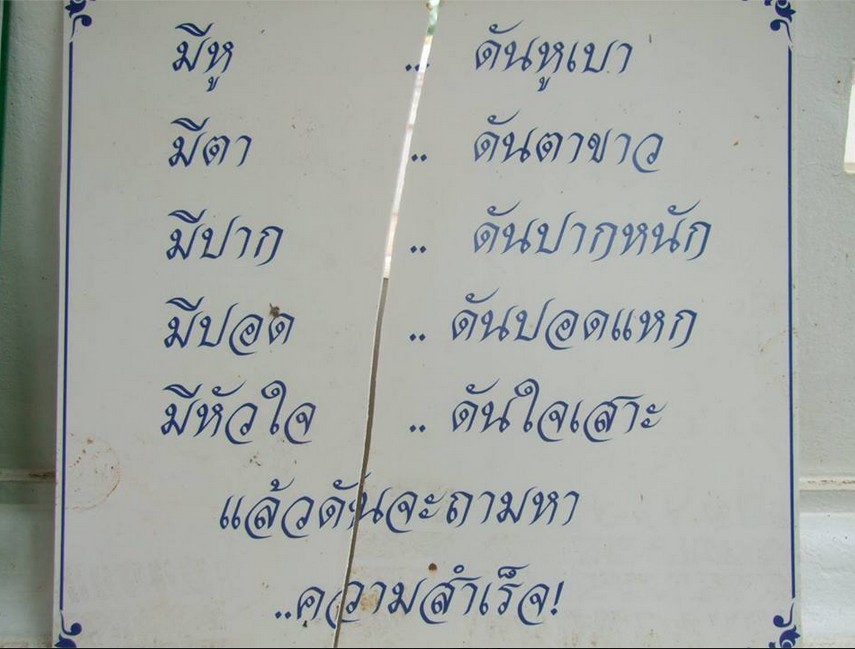 มีหู ... ดันหูเบา
มีตา .. ดันตาขาว
มีปาก .. ดันปากหนัก
มีปอด .. ดันปอดแหก
มีหัวใจ .. ดันใจเสาะ
แล้วดันจะถามหา
..ความสำเร็จ!